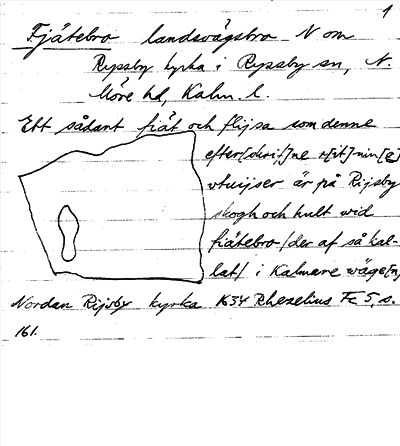 1
Fjätebro landsvägsbro N om
Ryssby kyrka i Ryssby sn, N.
Möre hd, Kalm. l.
Ett sådant fiät och flijsa som denne
efter[skrif]ne r[it]-nin[g]
vtwijser är på Rijsby
skogh och hult wid
fiätebro /der af så kal-
lat/ i Kalmare wäge[n]
Nordan Rijsby kyrka 1634 Rhezelius Fc 5, s.
161.